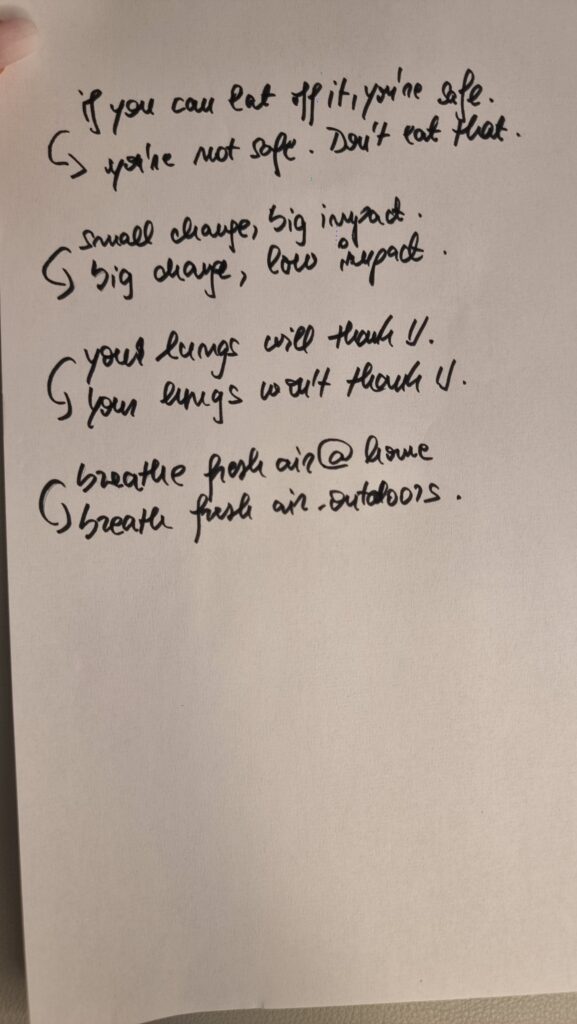 if you can eat off it, you're safe.
you're not safe. Don't eat that.
small change, big impact.
big change, low impact.
your lungs will thank U.
your lungs won't thank U.
breathe fresh air @ home
breath fresh air outdoors.